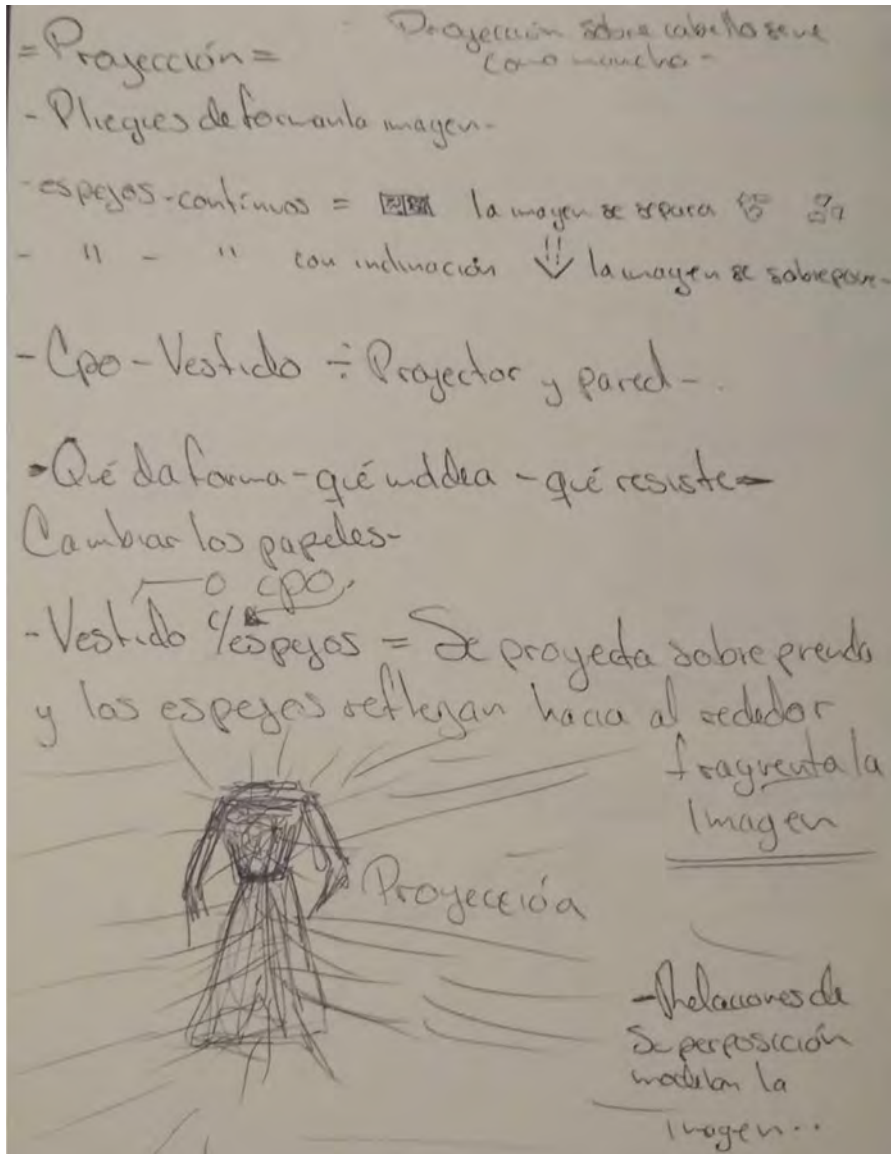 =Proyección=
- Proyección sobre cabello se ve
como mancha -
- Pliegues deforman la imagen -
- espejos - continuos = la imagen se separa
- " - " con inclinación la imagen se sobrepone -
- Cpo - Vestido ÷ Proyector y pared -
- Qué da forma - qué moldea - qué resiste -
Cambiar los papeles -
o cpo.
- Vestido c/espejos = Se proyecta sobre prenda
y los espejos reflejan hacia al rededor
fragmenta la
Imagen
Proyección
- Relaciones de
Superposición
modelan la
Imagen..